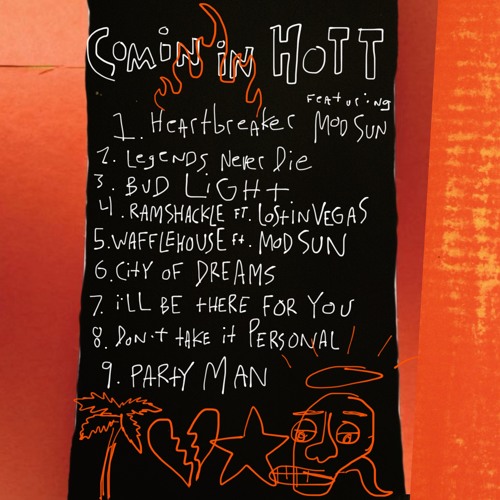 COMIN iN HOTT
1. Heartbreaker Featuring MOD SUN
2. Legends Never Die
3. BUD LiGHt
4. RAMSHACKLE FT. LOStiNVEGAS
5. WAFFLEHOUSE ft. MOD SUN
6. CitY OF DREAMS
7. i'LL BE tHERE FOR YOU
8. DON't tAKE it PERSONAL
9. PARtY MAN